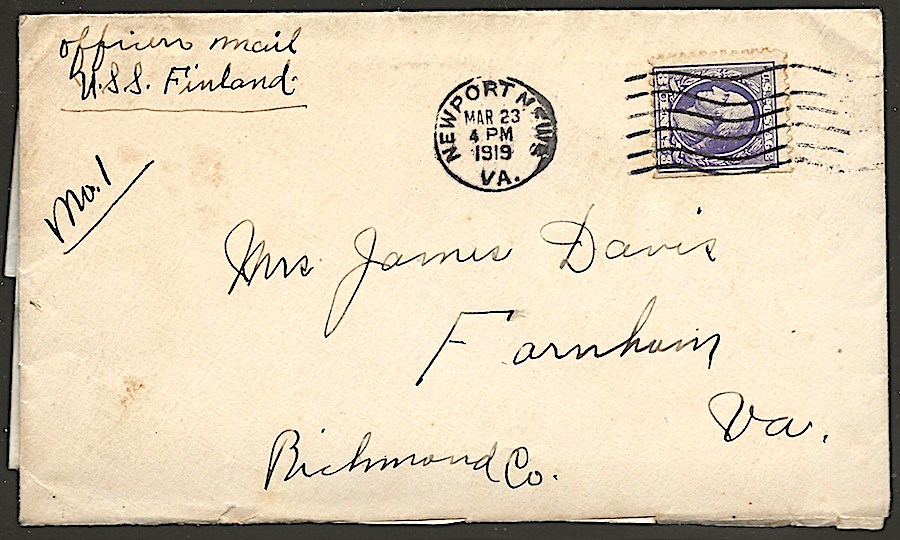 Officers mail
U.S.S. Finland
No. 1
NEWPORT NEWS
MAR 23
4 PM
1919
VA.
Mrs. James Davis
Farnham
Va.
Richmond Co.